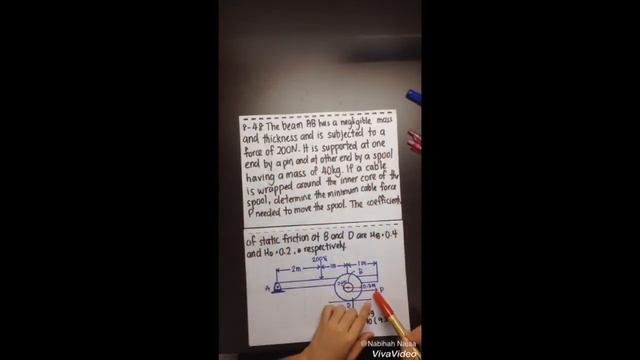 8-48 The beam AB has a negligible mass
and thickness and is subjected to a
force of 200N. It is supported at one
end by a pin and at other end by a spool
having a mass of 40kg. If a cable
is wrapped around the inner core of the
spool, determine the minimum cable force
P needed to move the spool. The coefficient
of static friction at B and D are μB = 0.4
and μD = 0.2, respectively.
200N
2m 1m 1m
B
A
P
D
@Nabihah Najaa
VivaVideo